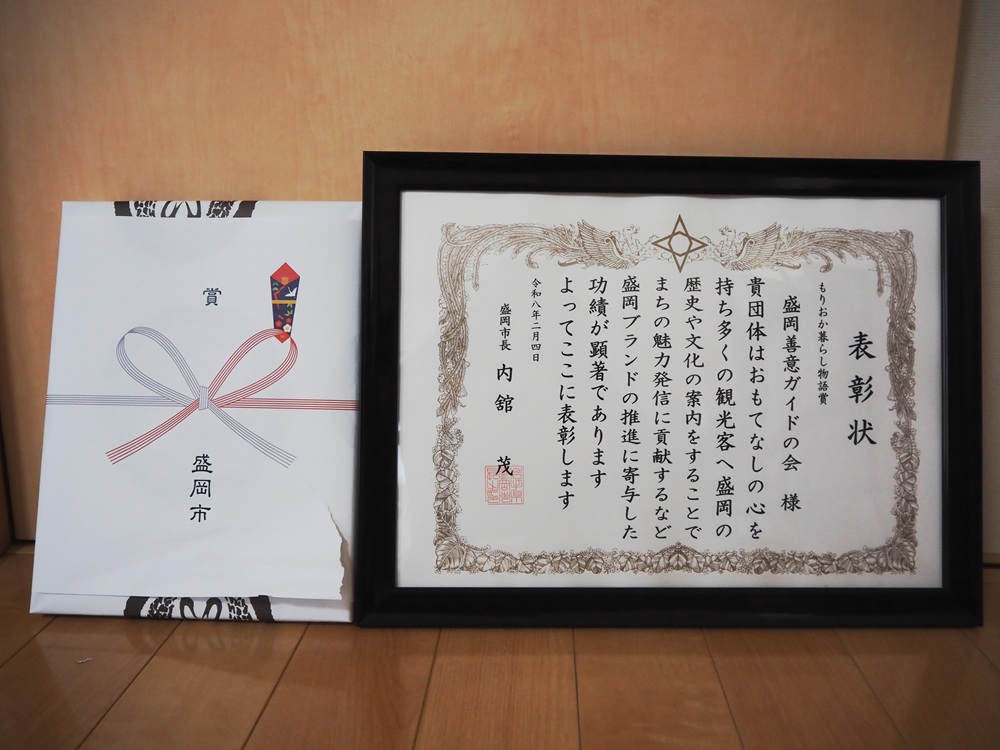 表彰状
もりおか暮らし物語賞
盛岡善意ガイドの会 様
貴団体はおもてなしの心を
持ち多くの観光客へ盛岡の
歴史や文化の案内をすることで
まちの魅力発信に貢献するなど
盛岡ブランドの推進に寄与した
功績が顕著であります
よってここに表彰します
令和八年二月四日
盛岡市長 内舘 茂
賞
盛岡市